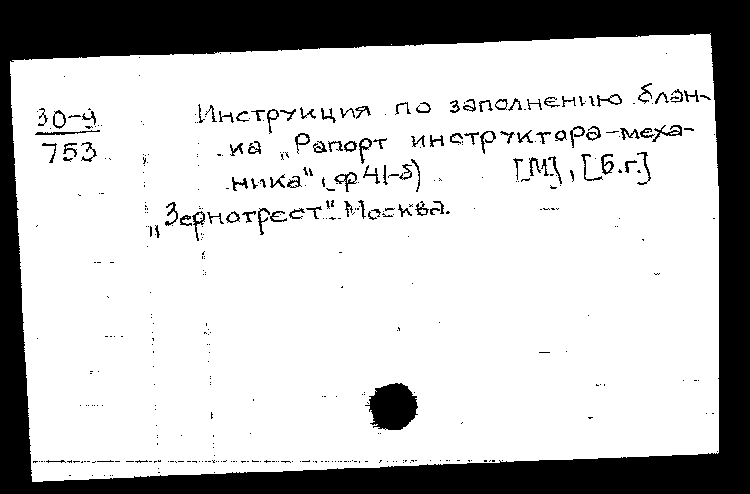 30-9
753
Инструкция по заполнению блан-
ка „Рапорт инструктора-меха-
ника" (ф 41-б) [М], [Б.г.]
„Зернотрест" Москва.